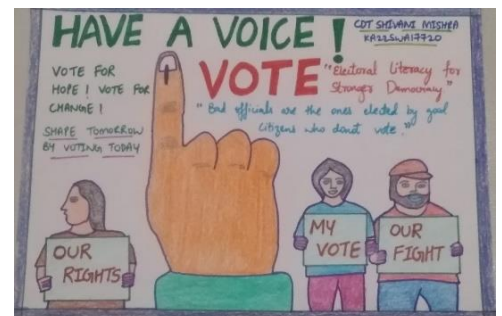 HAVE A VOICE!
CDT SHIVANI MISHRA
KA22SWA17720
VOTE FOR
HOPE! VOTE FOR
CHANGE!
SHAPE TOMORROW
BY VOTING TODAY
VOTE
"Electoral Literacy for
Stronger Democracy"
"Bad officials are the ones elected by good
citizens who donot vote."
OUR
RIGHTS
MY
VOTE
OUR
FIGHT